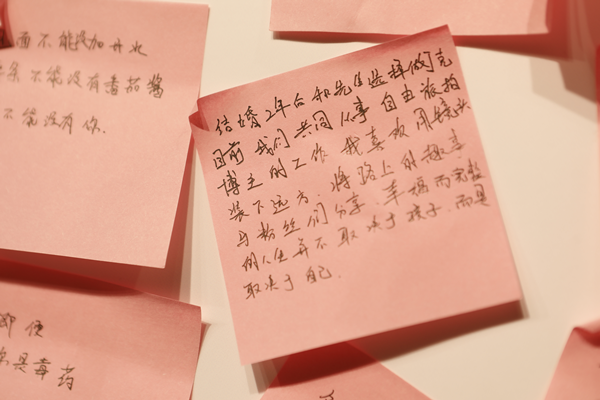 面不能没加开水
条不能没有番茄酱
不能没有你.
结婚2年后和先生选择做丁克
目前我们共同从事自由旅拍
博主的工作.我喜欢用镜头
装下远方.将路上的趣事
与粉丝们分享.幸福而完整
的人生并不取决于孩子.而是
取决于自己.
即便
你是毒药